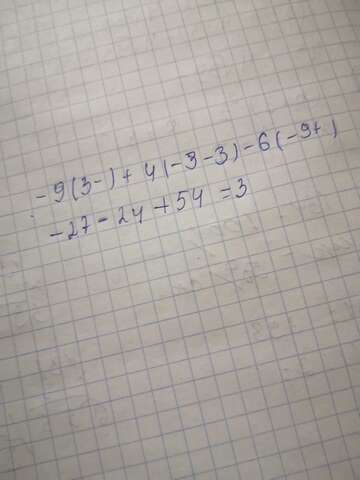 -9(3-)+4(-3-3)-6(-9+)
-27-24+54=3